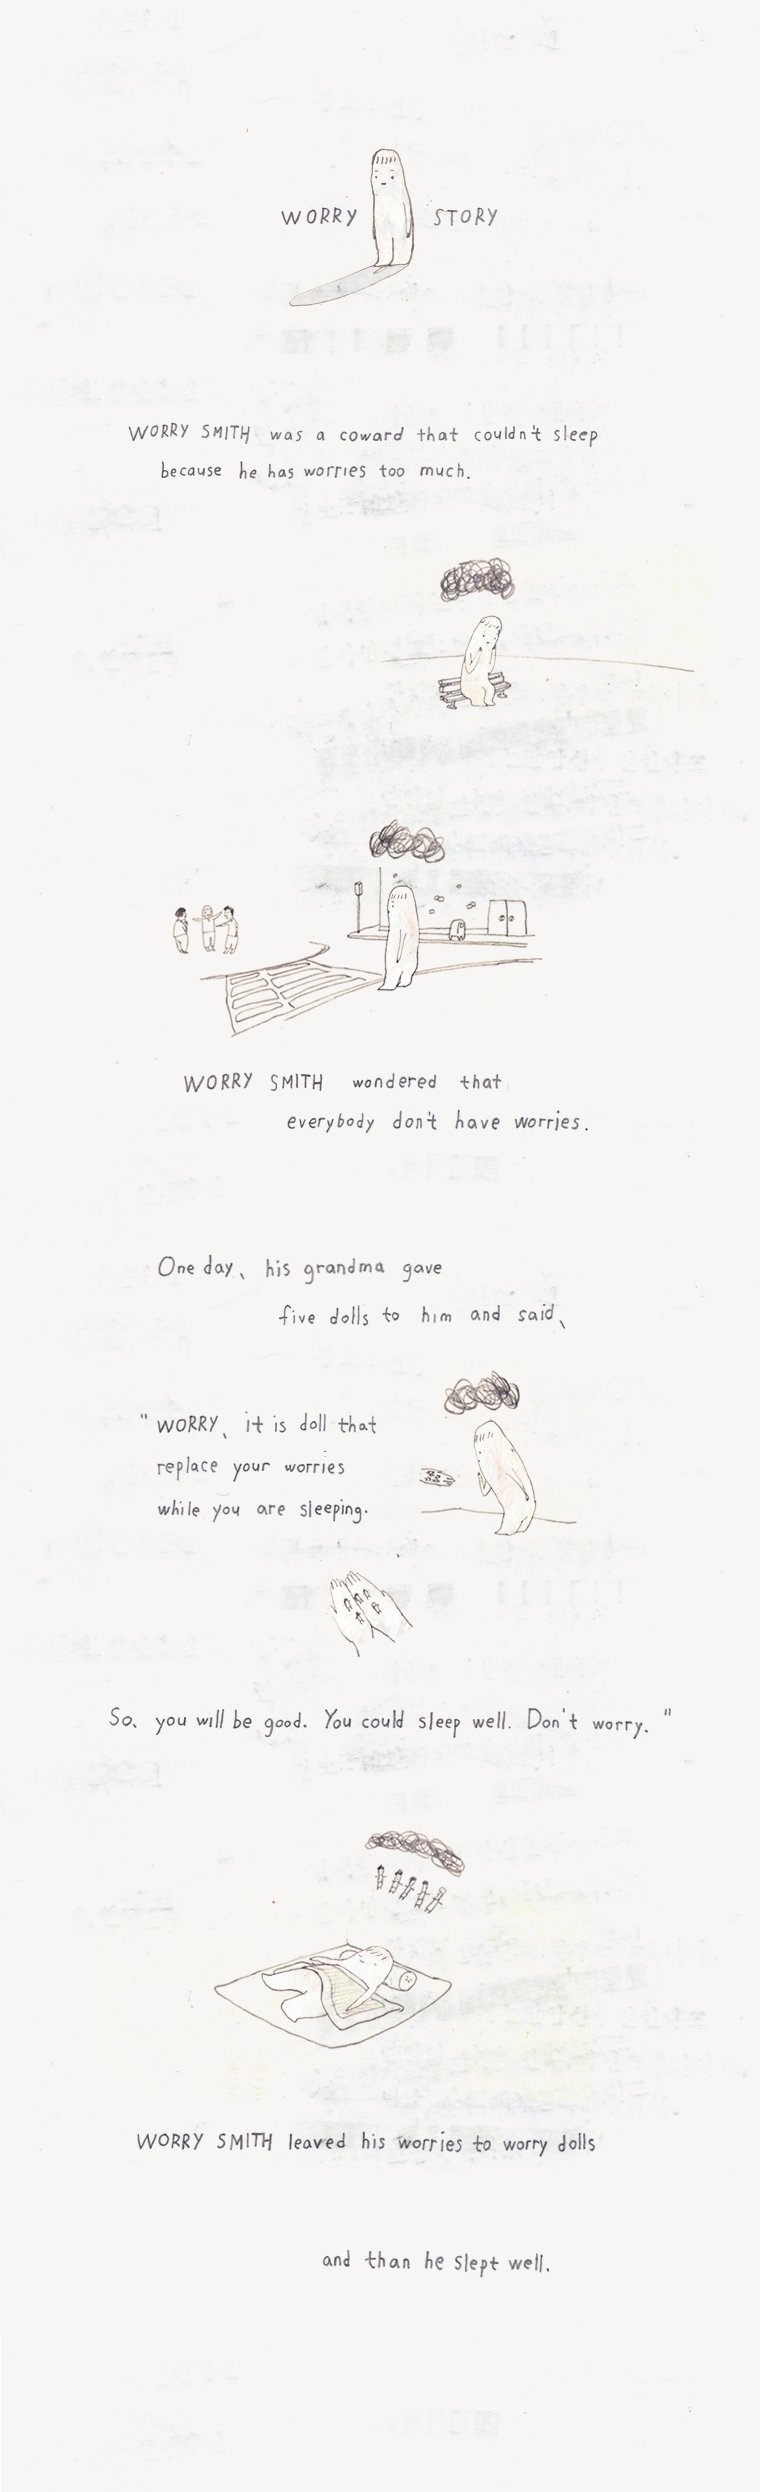 WORRY STORY
WORRY SMITH was a coward that couldn't sleep
because he has worries too much.
WORRY SMITH wondered that
everybody don't have worries.
One day、 his grandma gave
five dolls to him and said、
" WORRY、 it is doll that
replace your worries
while you are sleeping.
So、 you will be good. You could sleep well. Don't worry. "
WORRY SMITH leaved his worries to worry dolls
and than he slept well.